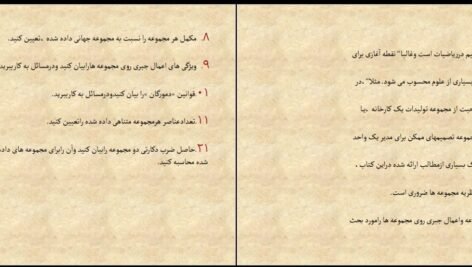 یم درریاضیات است وغالبا" نقطه آغازی برای
بسیاری از علوم محسوب می شود، مثلا" ،در
عیت از مجموعه تولیدات یک کارخانه ،یا
موعه تصمیمهای ممکن برای مدیر یک واحد
ک بسیاری ازمطالب ارائه شده دراین کتاب ،
نظریه مجموعه ها ضروری است.
عه واعمال جبری روی مجموعه ها رامورد بحث
۸. مکمل هر مجموعه را نسبت به مجموعه جهانی داده شده ،تعیین کنید.
۹. ویژگی های اعمال جبری روی مجموعه هارابیان کنید ودرمسائل به کاربرید.
۰۱.قوانین «دمورگان »را بیان کنیدودرمسائل به کاربرید.
۱۱.تعدادعناصر هرمجموعه متناهی داده شده راتعیین کنید.
۲۱.حاصل ضرب دکارتی دو مجموعه رابیان کنید وآن رابرای مجموعه های داده
شده محاسبه کنید.